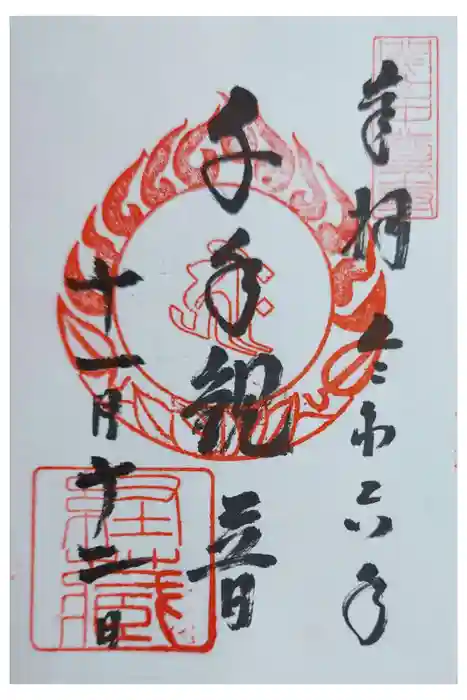 奉拝 令和六年
千手観音
十一月十二日
経蔵